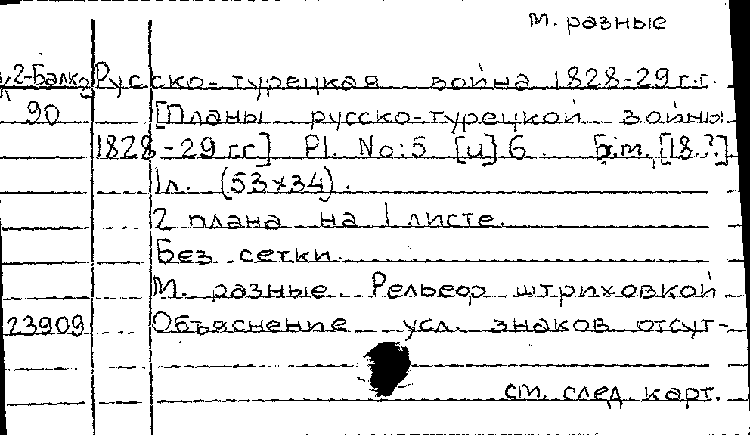 М. разные
2-Балк Русско-турецкая война 1828-29 г.г.
90 [Планы русско-турецкой войны
1828-29 гг] Pl. No: 5 [и] 6. [18.?]
1л. (53×34).
2 плана на 1 листе.
Без сетки.
М. разные. Рельеф штриховкой
23909 Объяснение усл. знаков отсут-
см. след. карт.